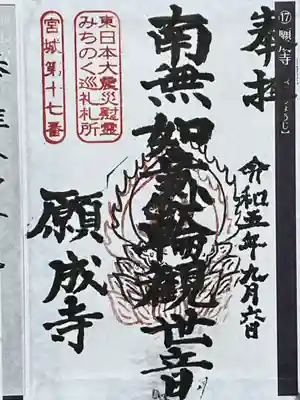 ⑰願
奉拝
令和五年九月六日
南無如意輪観世音
願成寺
東日本大震災慰霊
みちのく巡礼札所
宮城第十七番